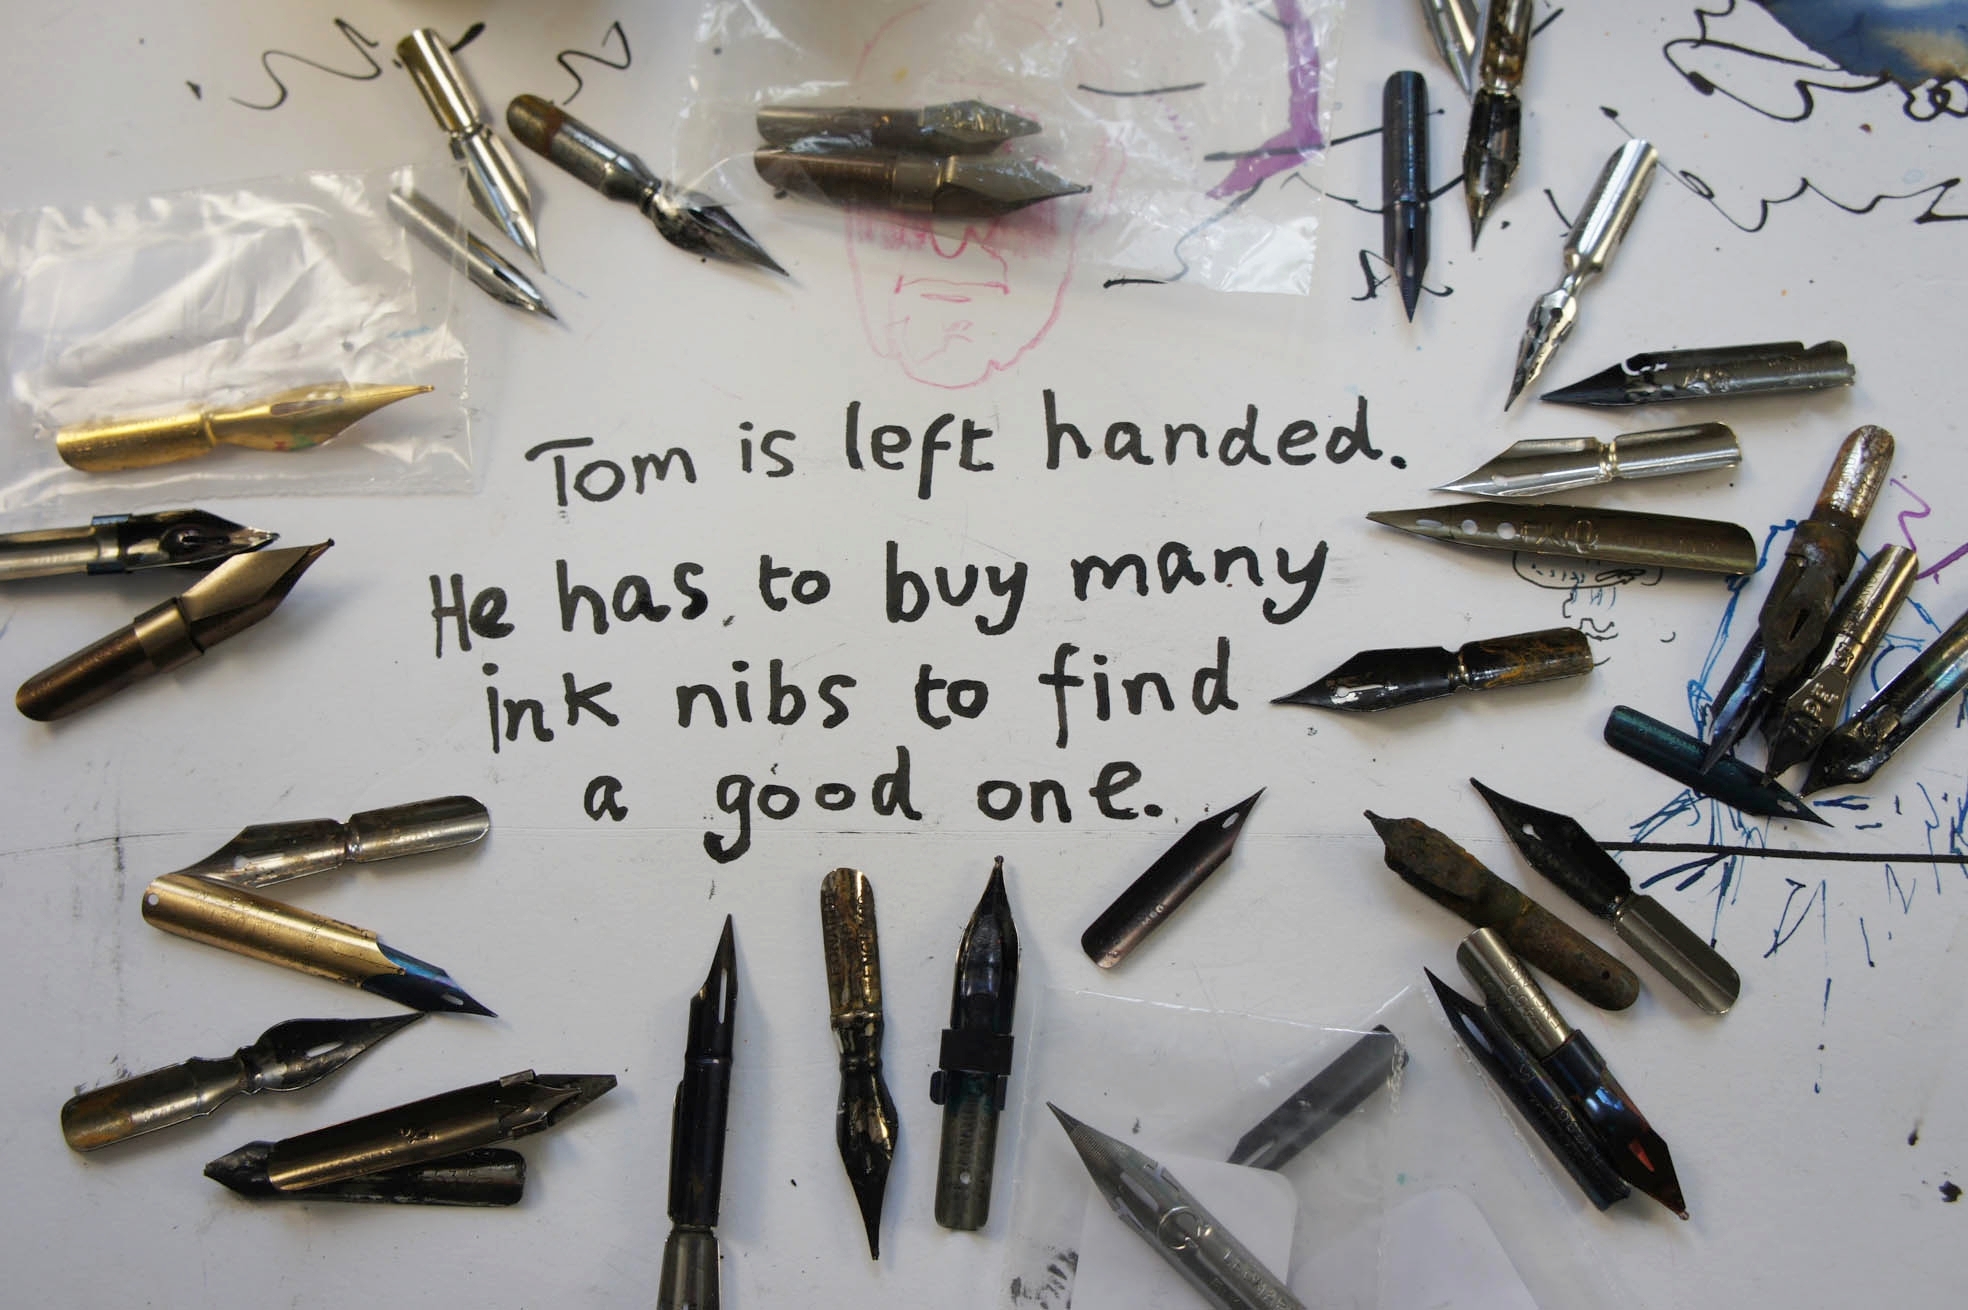 Tom is left handed.
He has to buy many
ink nibs to find
a good one.